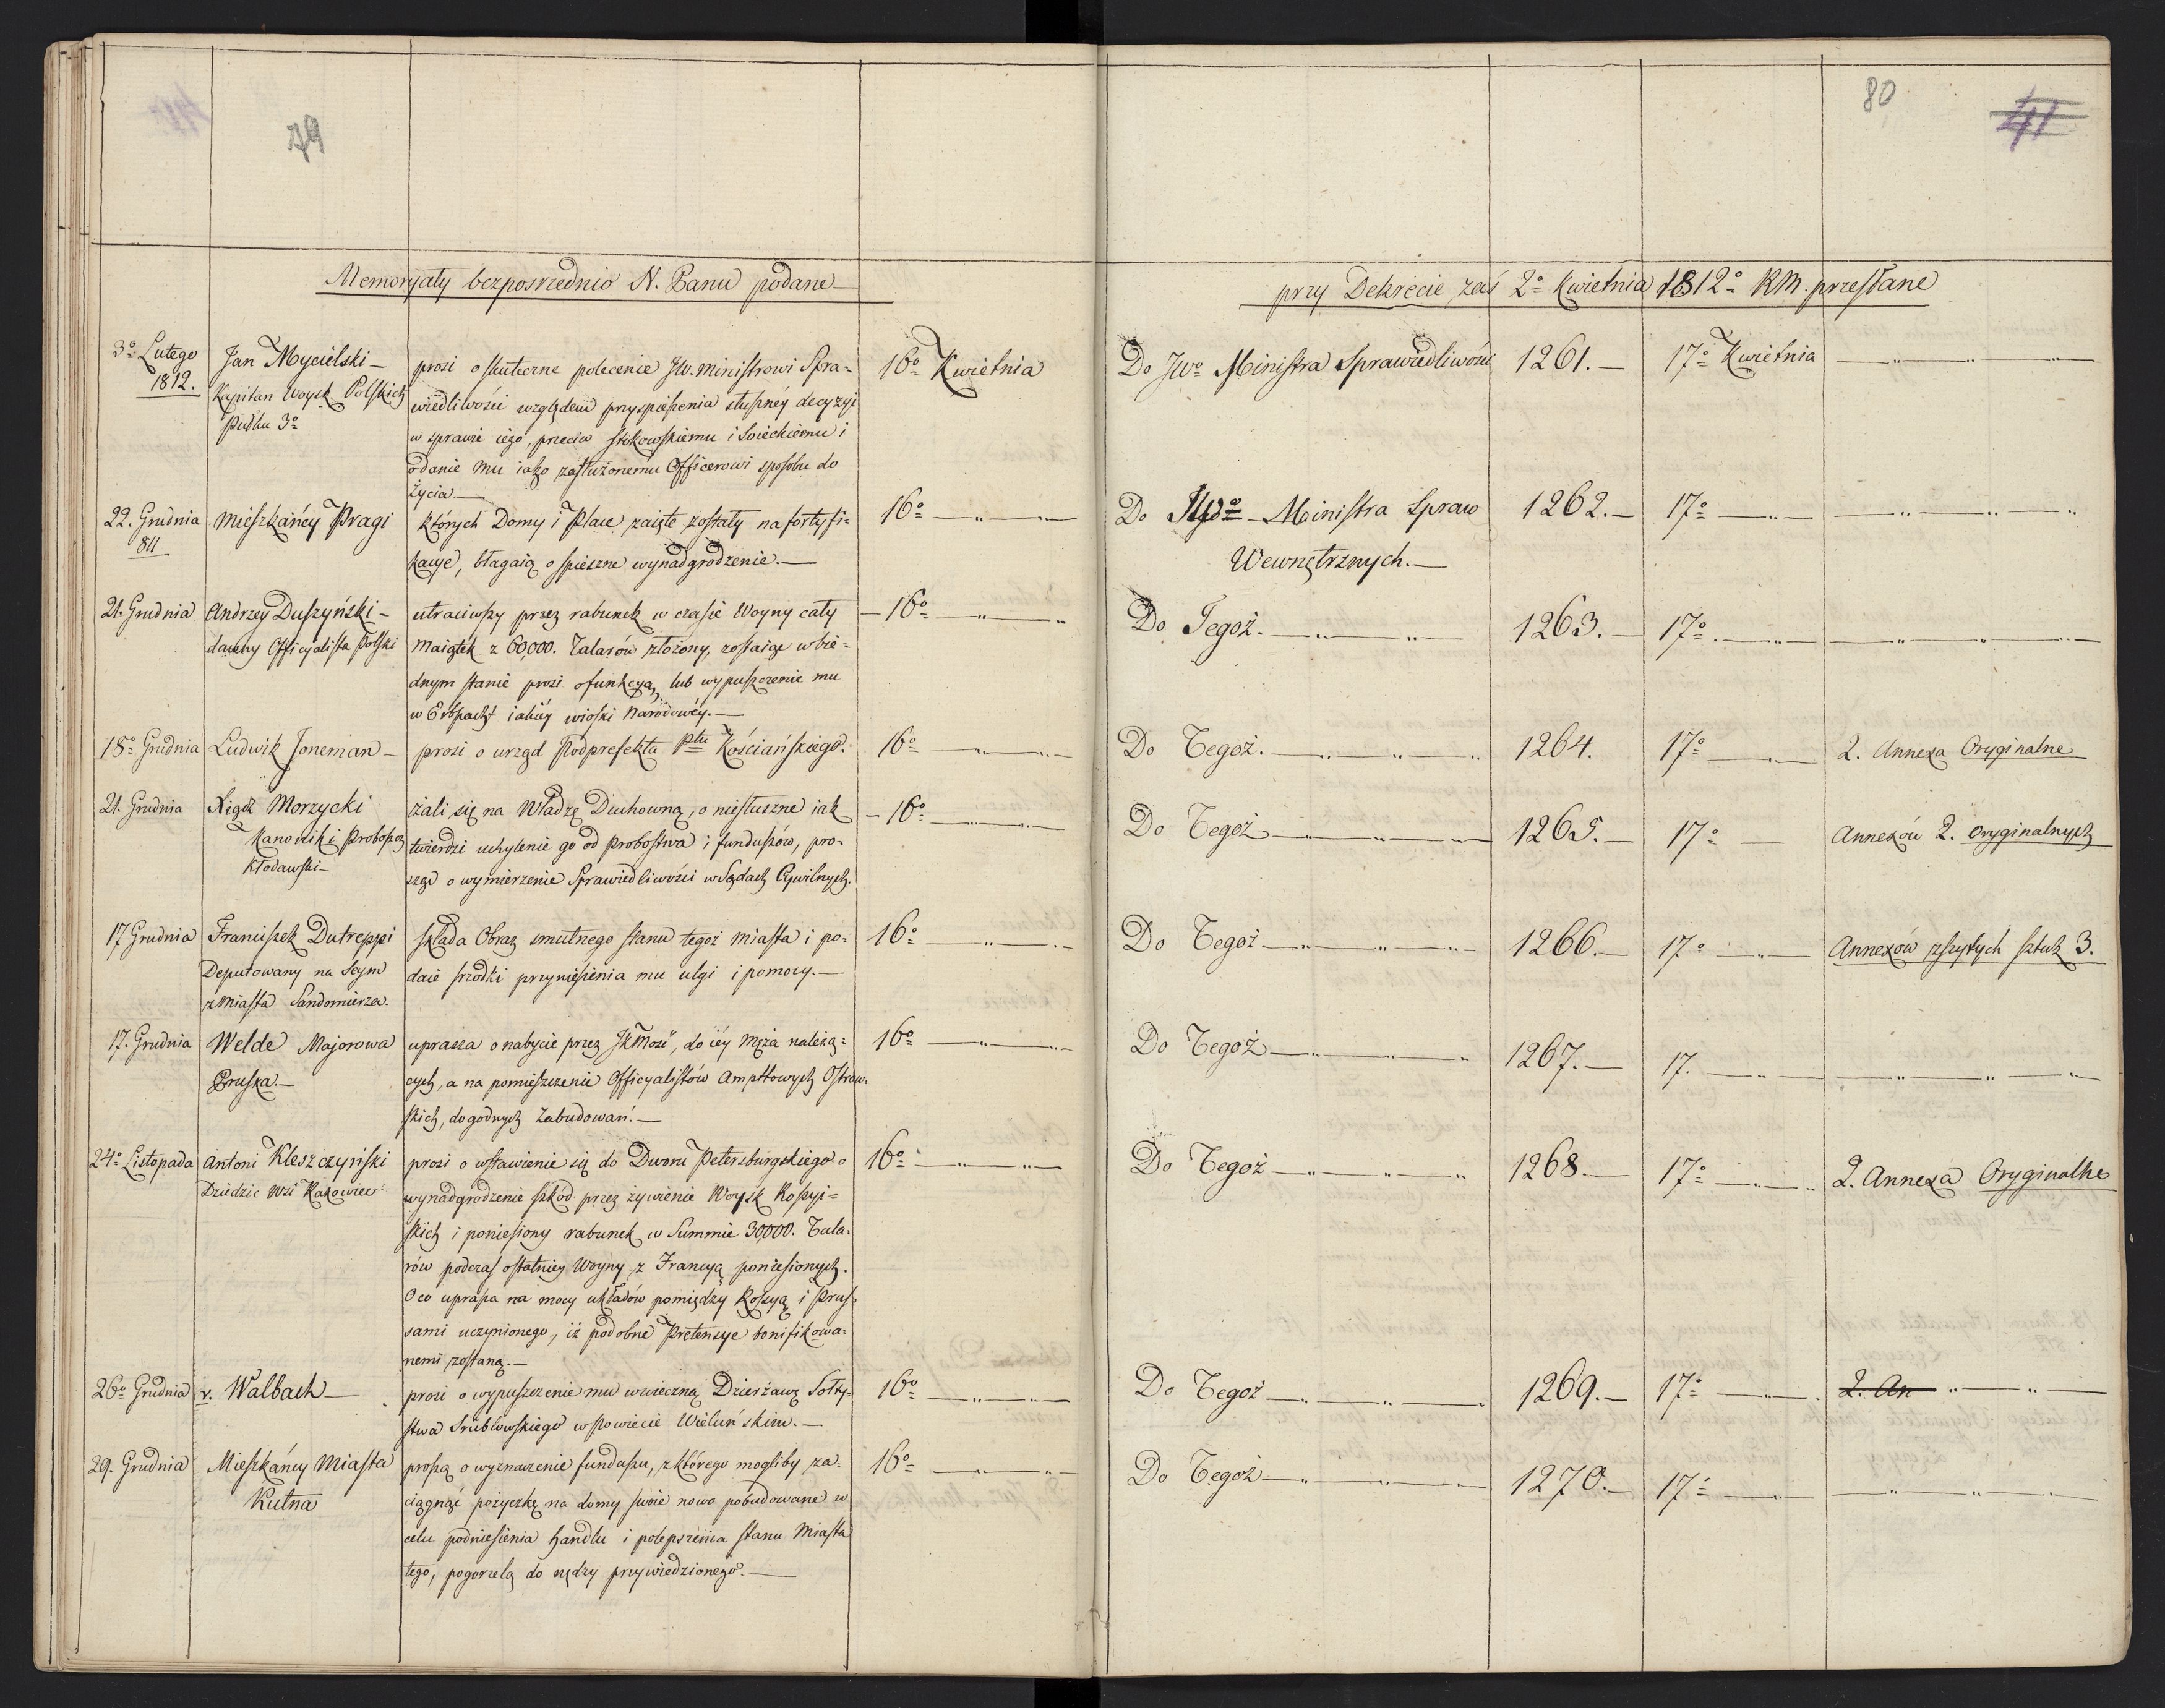 79
80
41
Memoryały bezposrzednio N. Panu podane
przy Dekrecie zaś 2º Kwietnia 1812º RM. przesłane
3º Lutego
1812.
Jan Mycielski
Kapitan Woysk Polskich
Pułku 3º
prosi o skuteczne polecenie JW. Ministrowi Spra=
wiedliwości względem przyspieszenia słuszney decyzyi
w sprawie iego, przeciw Stokowskiemu i Soieckiemu i
o danie mu iako zasłużonemu Officerowi sposobu do
życia
16º Kwietnia
Do JWº Ministra Sprawiedliwości
1261.
17º Kwietnia
22. Grudnia
811
Mieszkańcy Pragi
których Domy i Place zaięte zostały na fortyfi=
kacye, błagaią o spieszne wynadgrodzenie.
16º
Do JWº Ministra Spraw
Wewnętrznych.
1262.
17º
21. Grudnia
Andrzey Duszyński
dawny Officyalista Polski
utraciwszy przez rabunek w czasie Woyny cały
Maiątek z 60,000. Talarów złożony, zostaiąc w bie=
dnym stanie prosi o funkcyą, lub wypuszczenie mu
w Erbpacht iakiéy wioski Narodowéy.
16º
Do Tegoż.
1263.
17º
18º Grudnia
Ludwik Joneman
prosi o urząd Podprefekta Pttu Kościańskiego.
16º
Do Tegoż.
1264.
17º
2. Annexa Oryginalne
21. Grudnia
Xiądz Morzycki
Kanonik i Proboszcz
Kłodawski
żali się na Władzę Duchowną, o niesłuszne iak
twierdzi uchylenie go od Probostwa i funduszów, pro=
sząc o wymierzenie Sprawiedliwości w Sądach Cywilnych.
16º
Do Tegoż
1265.
17º
Annexów 2. oryginalnych
17 Grudnia
Franciszek Dutreppi
Deputowany na Seym
z Miasta Sandomierza.
składa Obraz smutnego stanu tegoż miasta i po=
daie srzodki przyniesienia mu ulgi i pomocy.
16º
Do Tegoż
1266.
17º
Annexów zszytych sztuk 3.
17. Grudnia
Welde Majorowa
Pruska
uprasza o nabycie przez JKMość, do iéy Męża należą=
cych, a na pomieszczenie Officyalistów Amptowych Ostrow=
skich, dogodnych Zabudowań.
16º
Do Tegoż
1267.
17.
24º Listopada
Antoni Kleszczyński
Dziedzic Wsi Kakowiec
prosi o wstawienie się do Dworu Petersburgskiego o
wynadgrodzenie szkód przez żywienie Woysk Rossyi=
skich i poniesiony rabunek w Summie 30,000. Tala=
rów podczas ostatniey Woyny z Francyą poniesionych.
O co uprasza na mocy układów pomiędzy Rossyą i Prus=
sami uczynionego, iż podobne Pretensye bonifikowa=
nemi zostaną.
16º
Do Tegoż
1268.
17º
2. Annexa Oryginalne
26º Grudnia
v. Walbach
prosi o wypuszczenie mu wwieczną Dzierżawę Sołty=
stwa Srublowskiego w Powiecie Wieluńskim.
16º
Do Tegoż
1269.
17º
2. An
29. Grudnia
Mieszkańcy Miasta
Kutna
proszą o wyznaczenie funduszu, z którego mogliby za=
ciągnąć pożyczkę na domy swoie nowo pobudowane w
celu podniesienia handlu i polepszenia stanu Miasta
tego, pogorzelą do nędzy przywiedzionego.
16º
Do Tegoż
1270.
17º